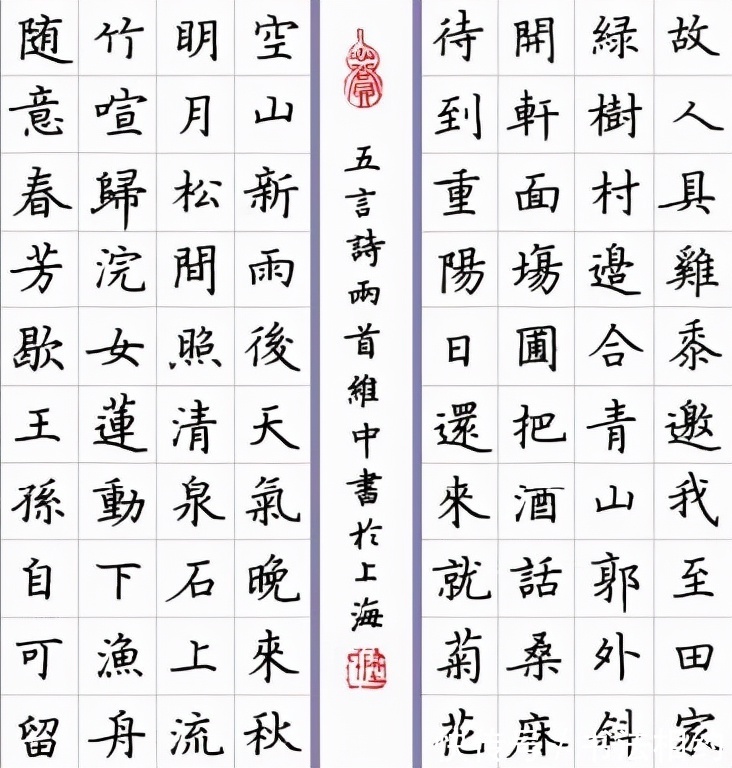 故人具雞黍邀我至田家
緑樹村邊合青山郭外斜
開軒面塲圃把酒話桑麻
待到重陽日還來就菊花
五言詩兩首維中書於上海
空山新雨後天氣晚來秋
明月松間照清泉石上流
竹喧歸浣女蓮動下漁舟
随意春芳歇王孫自可留